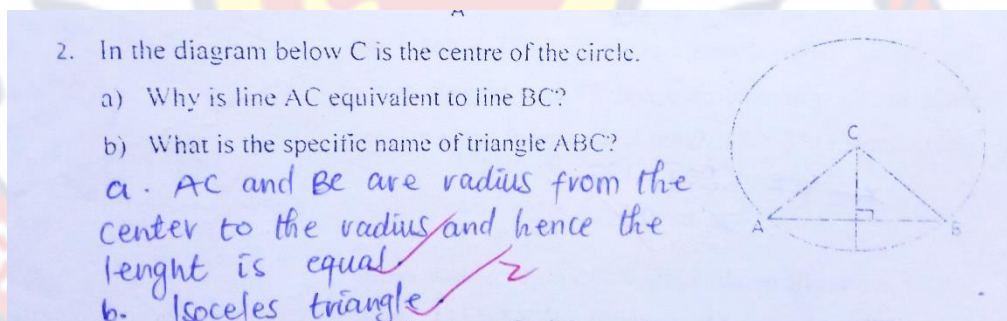 2. In the diagram below C is the centre of the circle.
a) Why is line AC equivalent to line BC?
b) What is the specific name of triangle ABC?
a. AC and BC are radius from the
center to the radius and hence the
lenght is equal.
b. Isoceles triangle.
2
C
A
B